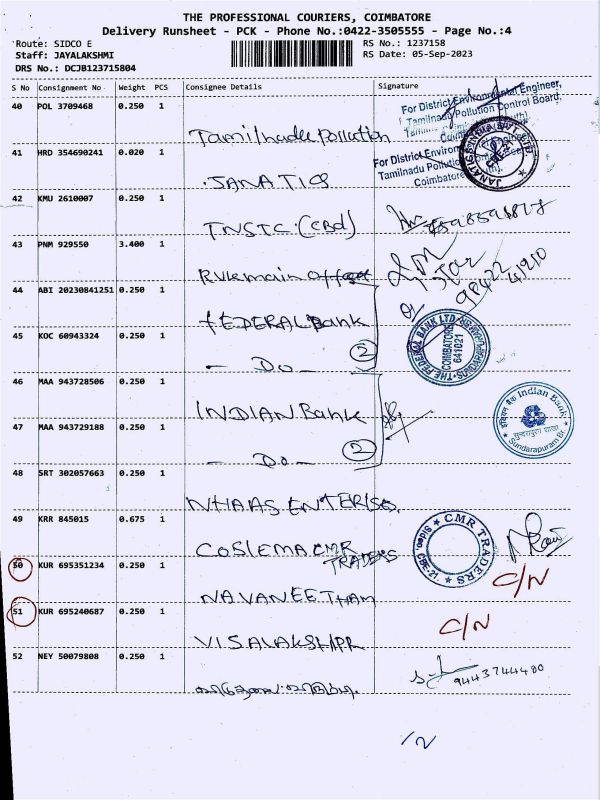 THE PROFESSIONAL COURIERS, COIMBATORE
Delivery Runsheet - PCK - Phone No.:0422-3505555 - Page No.:4
Route: SIDCO E RS No.: 1237158
Staff: JAYALAKSHMI RS Date: 05-Sep-2023
DRS No.: DCJB123715804
S No Consignment No Weight PCS Consignee Details Signature
40 POL 3709468 0.250 1
For District Environmental Engineer,
Tamilnadu Pollution Control Board,
Tamilnadu Pollution
41 HRD 354690241 0.020 1
For District Environmental Engineer
Tamilnadu Pollution
Coimbatore
JANATICS
42 KMU 2610007 0.250 1
TNSTC (CBd)
43 PNM 929550 3.400 1
RVK main
98422
41210
44 ABI 20230841251 0.250 1
FEDERAL Bank
THE FEDERAL BANK LTD
COIMBATORE
641021
45 KOC 60943324 0.250 1
- Do - 2
46 MAA 943728506 0.250 1
INDIAN Bank
Indian Bank
Sundarapuram Br
47 MAA 943729188 0.250 1
- Do - 2
48 SRT 302057663 0.250 1
NHAAS ENTERISES.
49 KRR 845015 0.675 1
COSIEMA CMR
TRADERS
CMR TRADERS
CBE-21
50 KUR 695351234 0.250 1
C/N
NAVANEETHAM
51 KUR 695240687 0.250 1
C/N
VISALAKSHIPR
52 NEY 50079808 0.250 1
9443744480